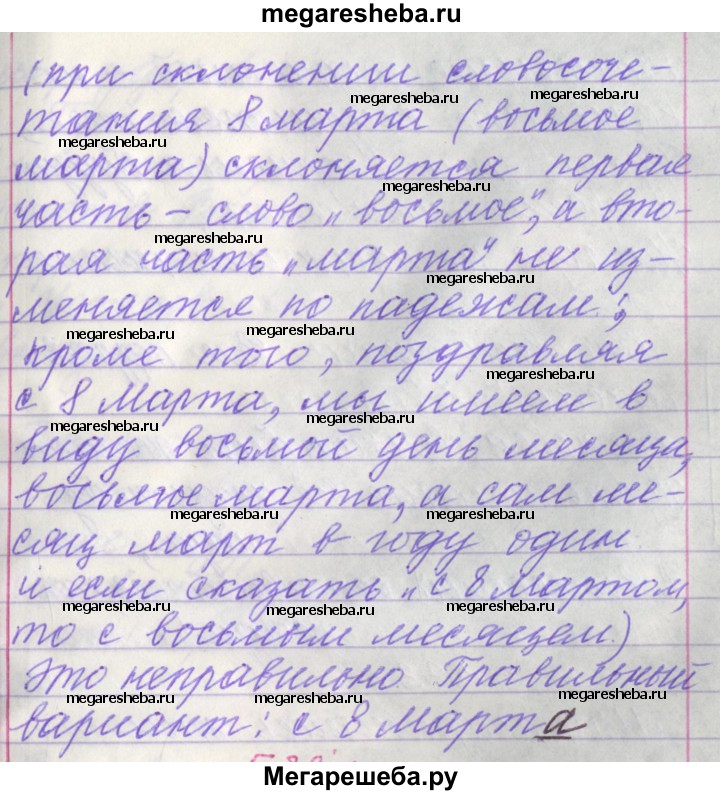 megaresheba.ru
(при склонении словосоче-
megaresheba.ru megaresheba.ru
тания 8 марта (восьмое
megaresheba.ru
марта) склоняется первая
megaresheba.ru
часть – слово „восьмое", а вто-
megaresheba.ru
рая часть „марта" не из-
megaresheba.ru
меняется по падежам;
megaresheba.ru megaresheba.ru
кроме того, поздравляя
megaresheba.ru
с 8 Марта, мы имеем в
megaresheba.ru megaresheba.ru
виду восьмой день месяца,
восьмое марта, а сам ме-
megaresheba.ru megaresheba.ru
сяц март в году один
и если сказать „с 8 Мартом,
megaresheba.ru megaresheba.ru megaresheba.ru
то с восьмым месяцем.)
Это неправильно Правильный
megaresheba.ru megaresheba.ru megaresheba.ru
вариант: с 8 Марта
Мегарешеба.ру